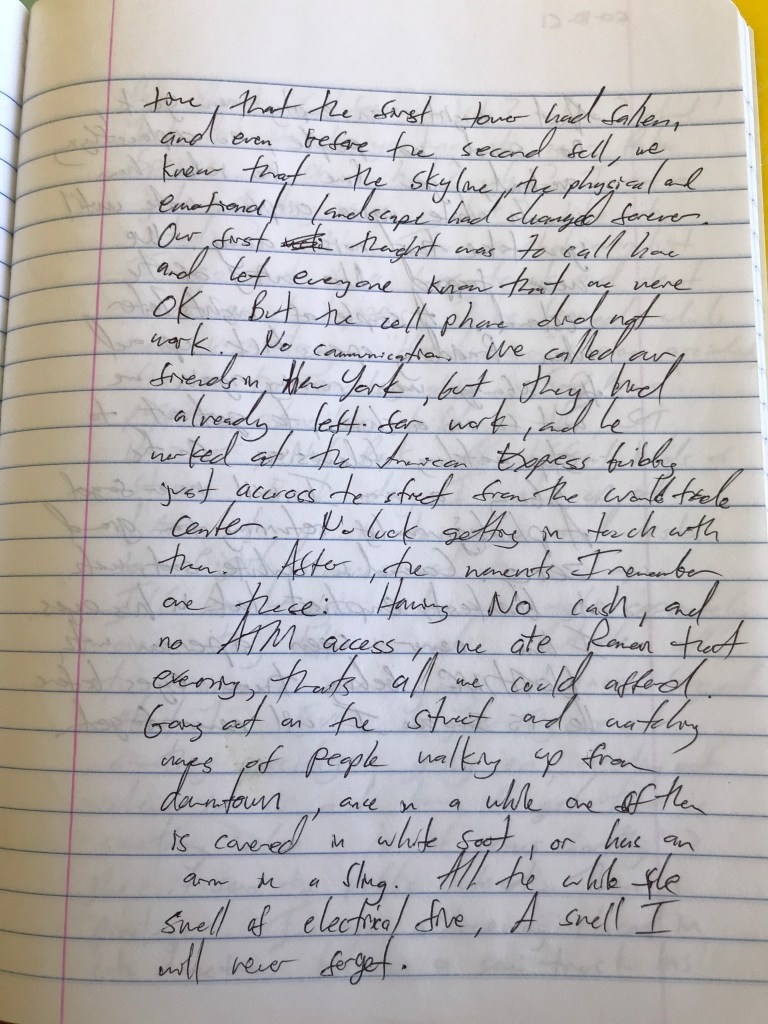 time, that the first tower had fallen,
and even before the second fell, we
knew that the skyline, the physical and
emotional landscape had changed forever.
Our first thought was to call home
and let everyone know that we were
OK But the cell phone did not
work. No communication. We called our
friends in New York, but they had
already left for work, and he
worked at the American Express building
just accross the street from the world trade
center. No luck getting in touch with
them. After, the moments I remember
are these: Having No cash, and
no ATM access, we ate Ramen that
evening, thats all we could afford.
Going out on the street and watching
waves of people walking up from
downtown, once in a while one of them
is covered in white soot, or has an
arm in a sling. All the while the
smell of electrical fire, A smell I
will never forget.